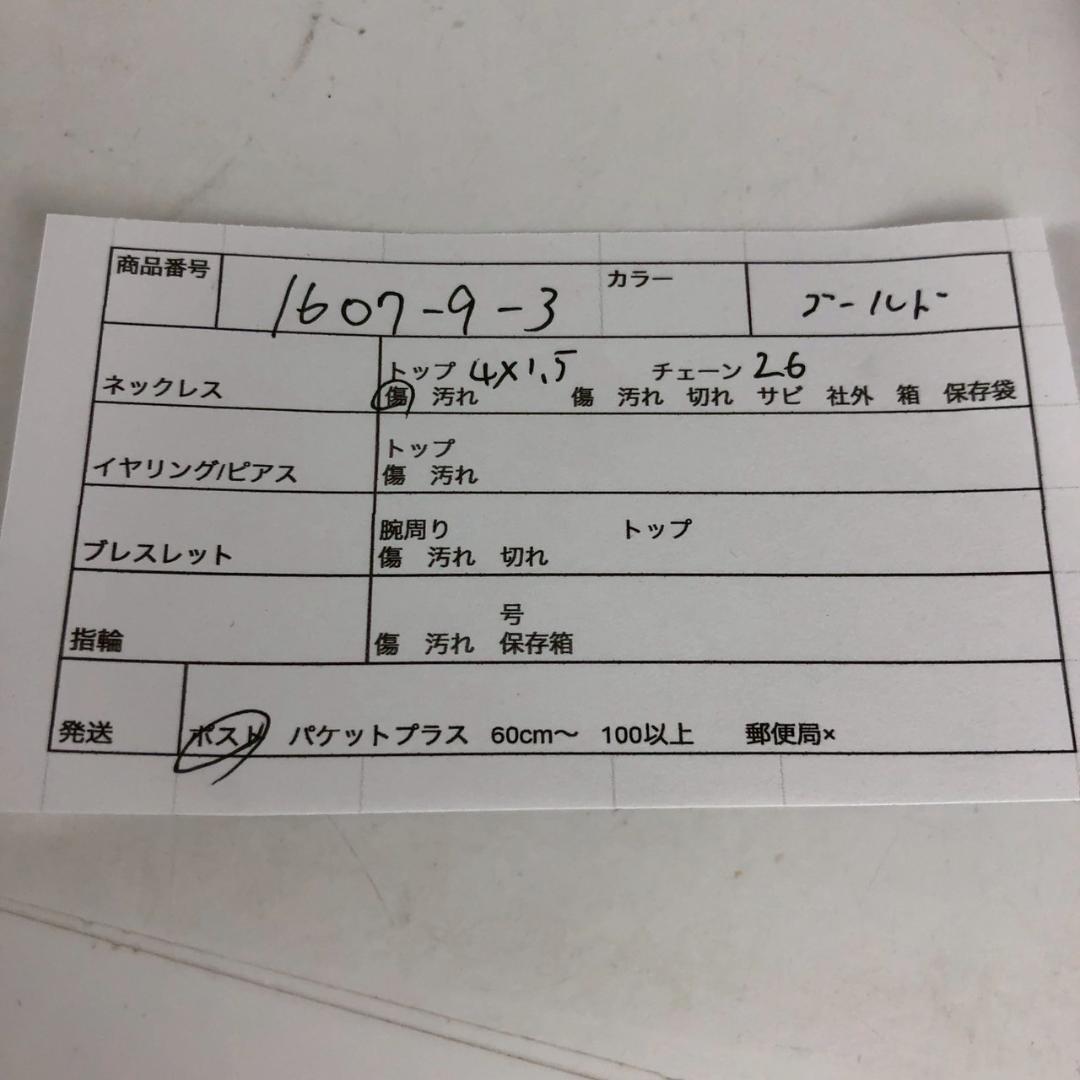 商品番号 1607-9-3 カラー ゴールド
ネックレス
トップ 4×1.5 チェーン 26
傷 汚れ 傷 汚れ 切れ サビ 社外 箱 保存袋
イヤリング/ピアス
トップ
傷 汚れ
ブレスレット
腕周り トップ
傷 汚れ 切れ
指輪
号
傷 汚れ 保存箱
発送 ポスト パケットプラス 60cm〜 100以上 郵便局×